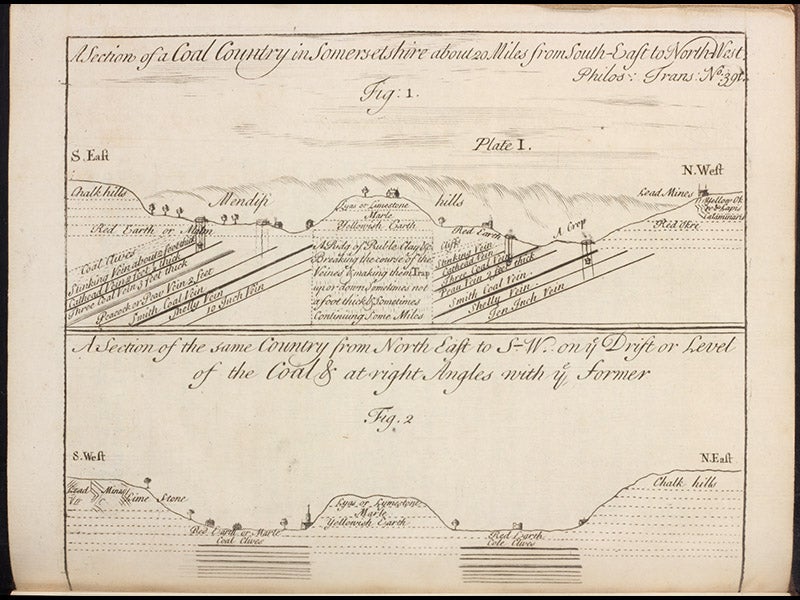 A Section of a Coal Country in Somersetshire about 20 Miles from South-East to North-West,
Philos: Trans: No. 391.
Fig: 1.
Plate I.
S. East
N. West
Chalk hills
Mendip
hills
Lyas or Limestone
Marle
Yellowish Earth
Lead Mines
Yellow Ok
re & Lapis
Calaminaris
Red Okre
Red Earth or Malm
Red Earth
A Crop
Coal Clives
Stinking Vein about 2 foot thick
Cathead Vein 2 foot ½ thick
Three Coal Vein 3 foot thick
Peacock or Peau Vein 2 feet
Smith Coal Vein
Shelly Vein
10 Inch Vein
A Ridg of Rubble Clay &c.
Breaking the course of the
Veines & making them Trap
up or down Sometimes not
a foot thick & Sometimes
Continuing Some Miles
Cliffs
Stinking Vein
Cathead Vein
Three Coal Vein
Peau Vein 2 feet thick
Smith Coal Vein
Shelly Vein
Ten Inch Vein
A Section of the same Country from North East to S-W. on ye Drift or Level
of the Coal & at right Angles with ye former
Fig. 2
S. West
N. East
Lead Mines
Lime Stone
Lyas or Lymestone
Marle
Yellowish Earth
Chalk hills
Red Earth or Marle
Coal Clives
Red Earth
Cole Clives